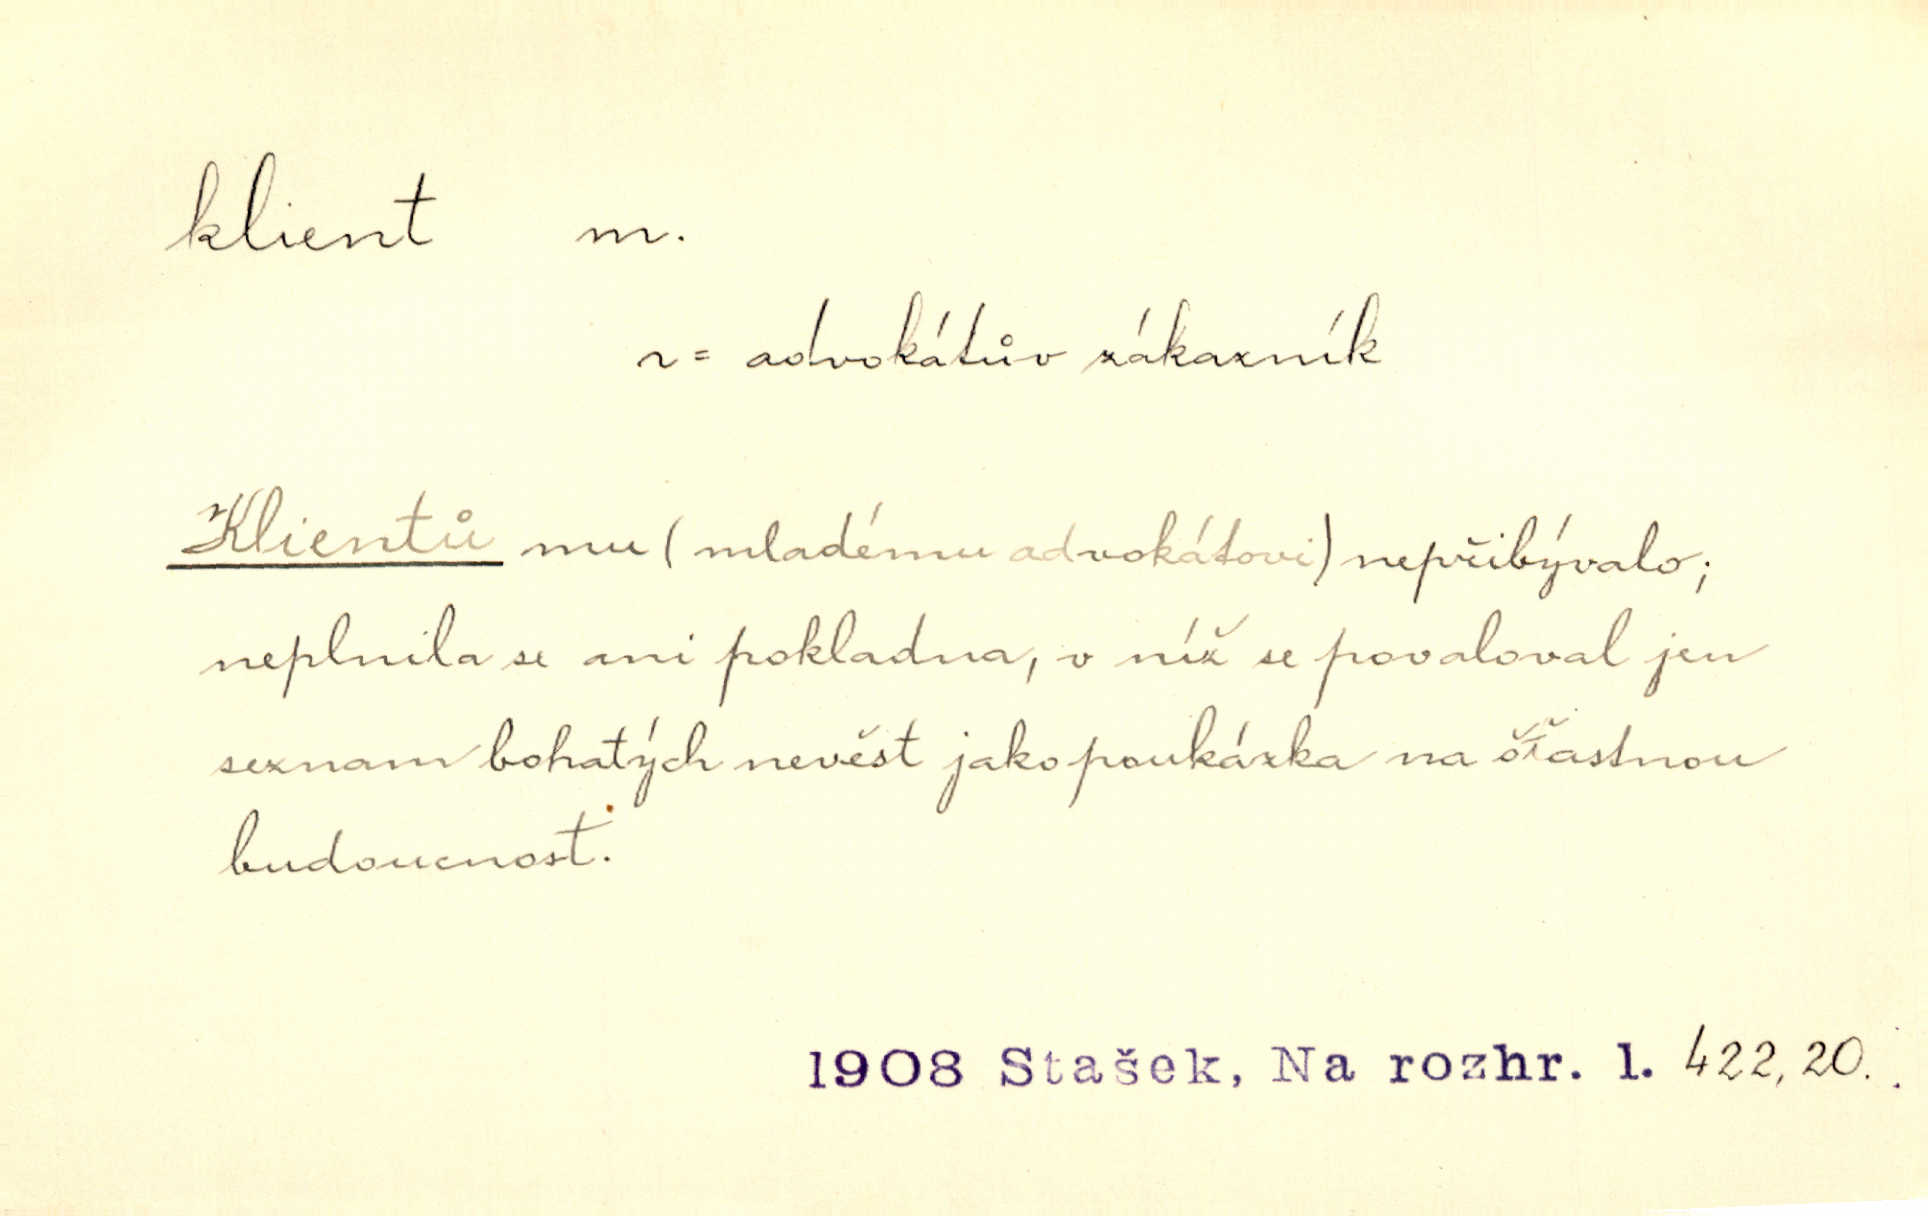 klient m.
r = advokátův zákazník
Klientů mu (mladému advokátovi) nepřibývalo;
neplnila se ani pokladna, v níž se povaloval jen
seznam bohatých nevěst jako poukázka na šťastnou
budoucnost.
1908 Stašek, Na rozhr. 1. 422,20.